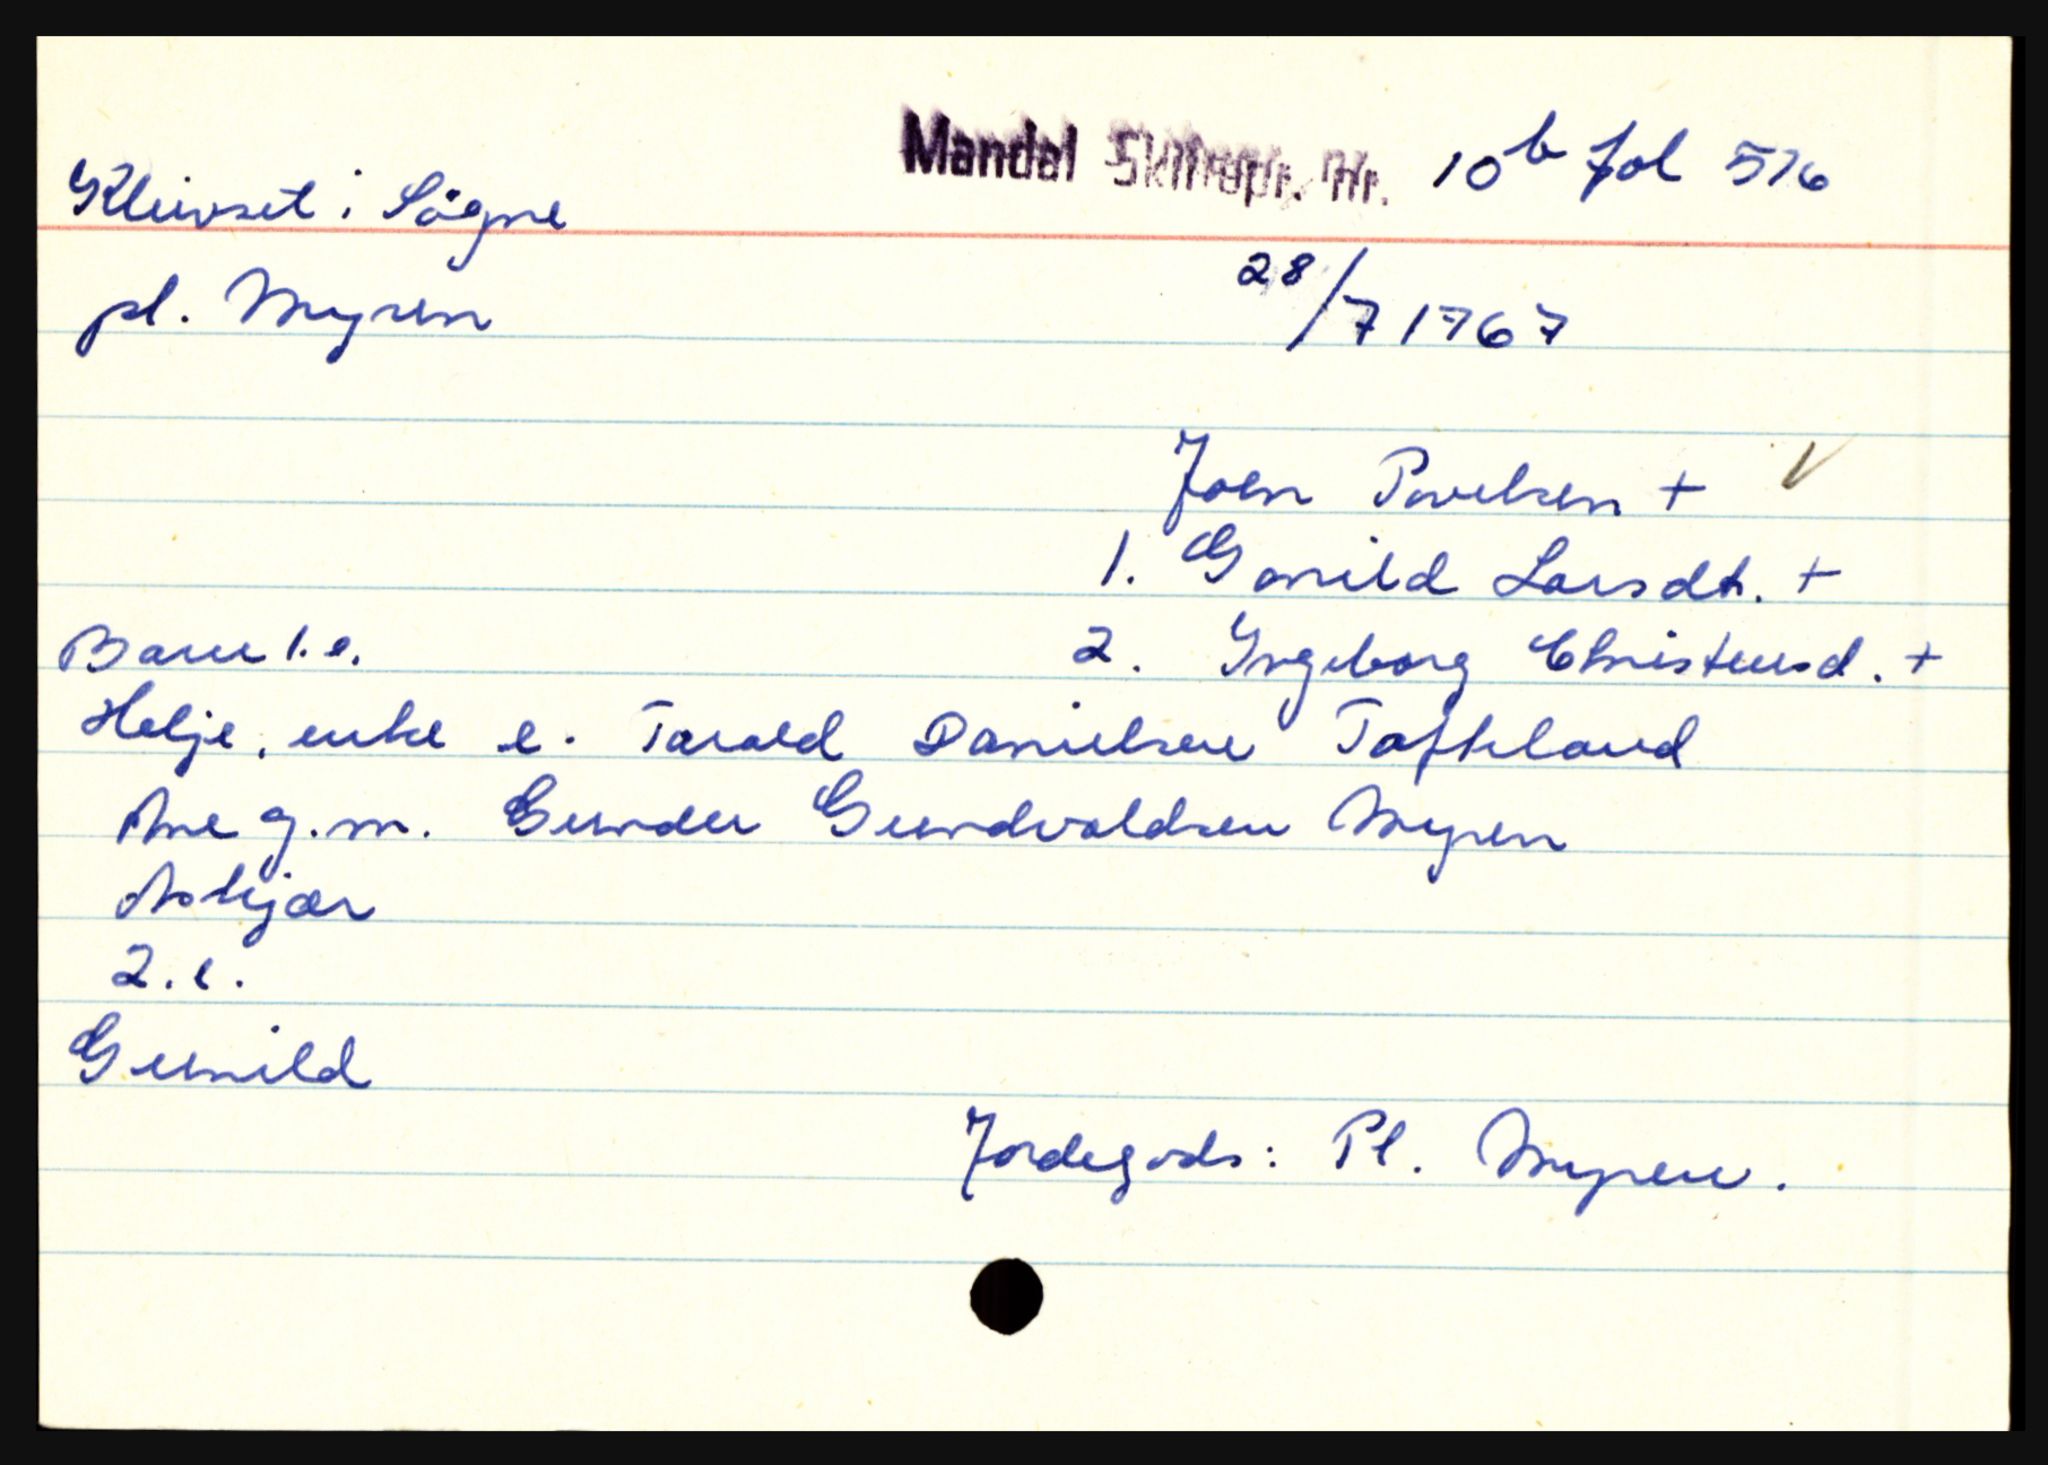 Mandal Skiftepr. Nr. 10b fol 516
Kleivset i Sögne
28/7 1767
pl. Myren
Joen Povelsen + V
1. Gonild Larsdt. +
Barn 1.e. 2. Yngeborg Christensd. +
Helje, enke e. Tarald Danielsen Tofteland
Ane g.m. Gunder Gundvaldsen Myren
Askjær
2.e.
Gunild
Jordegods: Pl. Myren.